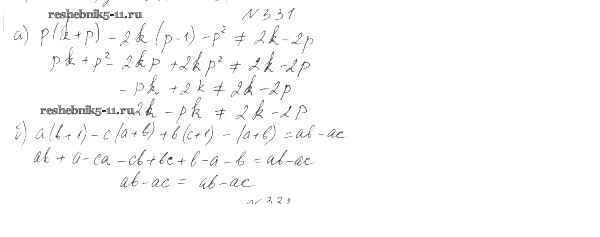 reshebnik5-11.ru N 331
а) p(k+p) - 2k(p-1) - p² ≠ 2k-2p
pk + p² - 2kp + 2kp² ≠ 2k-2p
- pk + 2k ≠ 2k-2p
reshebnik5-11.ru 2k - pk ≠ 2k - 2p
б) a(b+1) - c(a+b) + b(c+1) - (a+b) = ab - ac
ab + a - ca - cb + bc + b - a - b = ab - ac
ab - ac = ab - ac